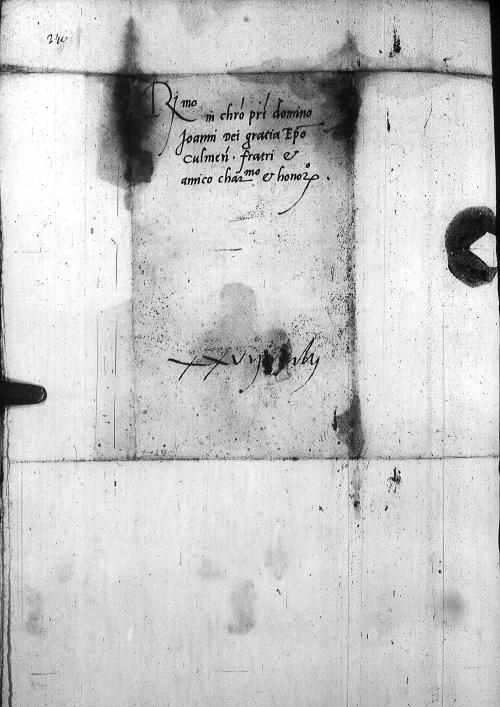 240
R mo
in chro pri domino
Joanni Dei gratia Epo
Culmeń. fratri &
amico char mo & honor.